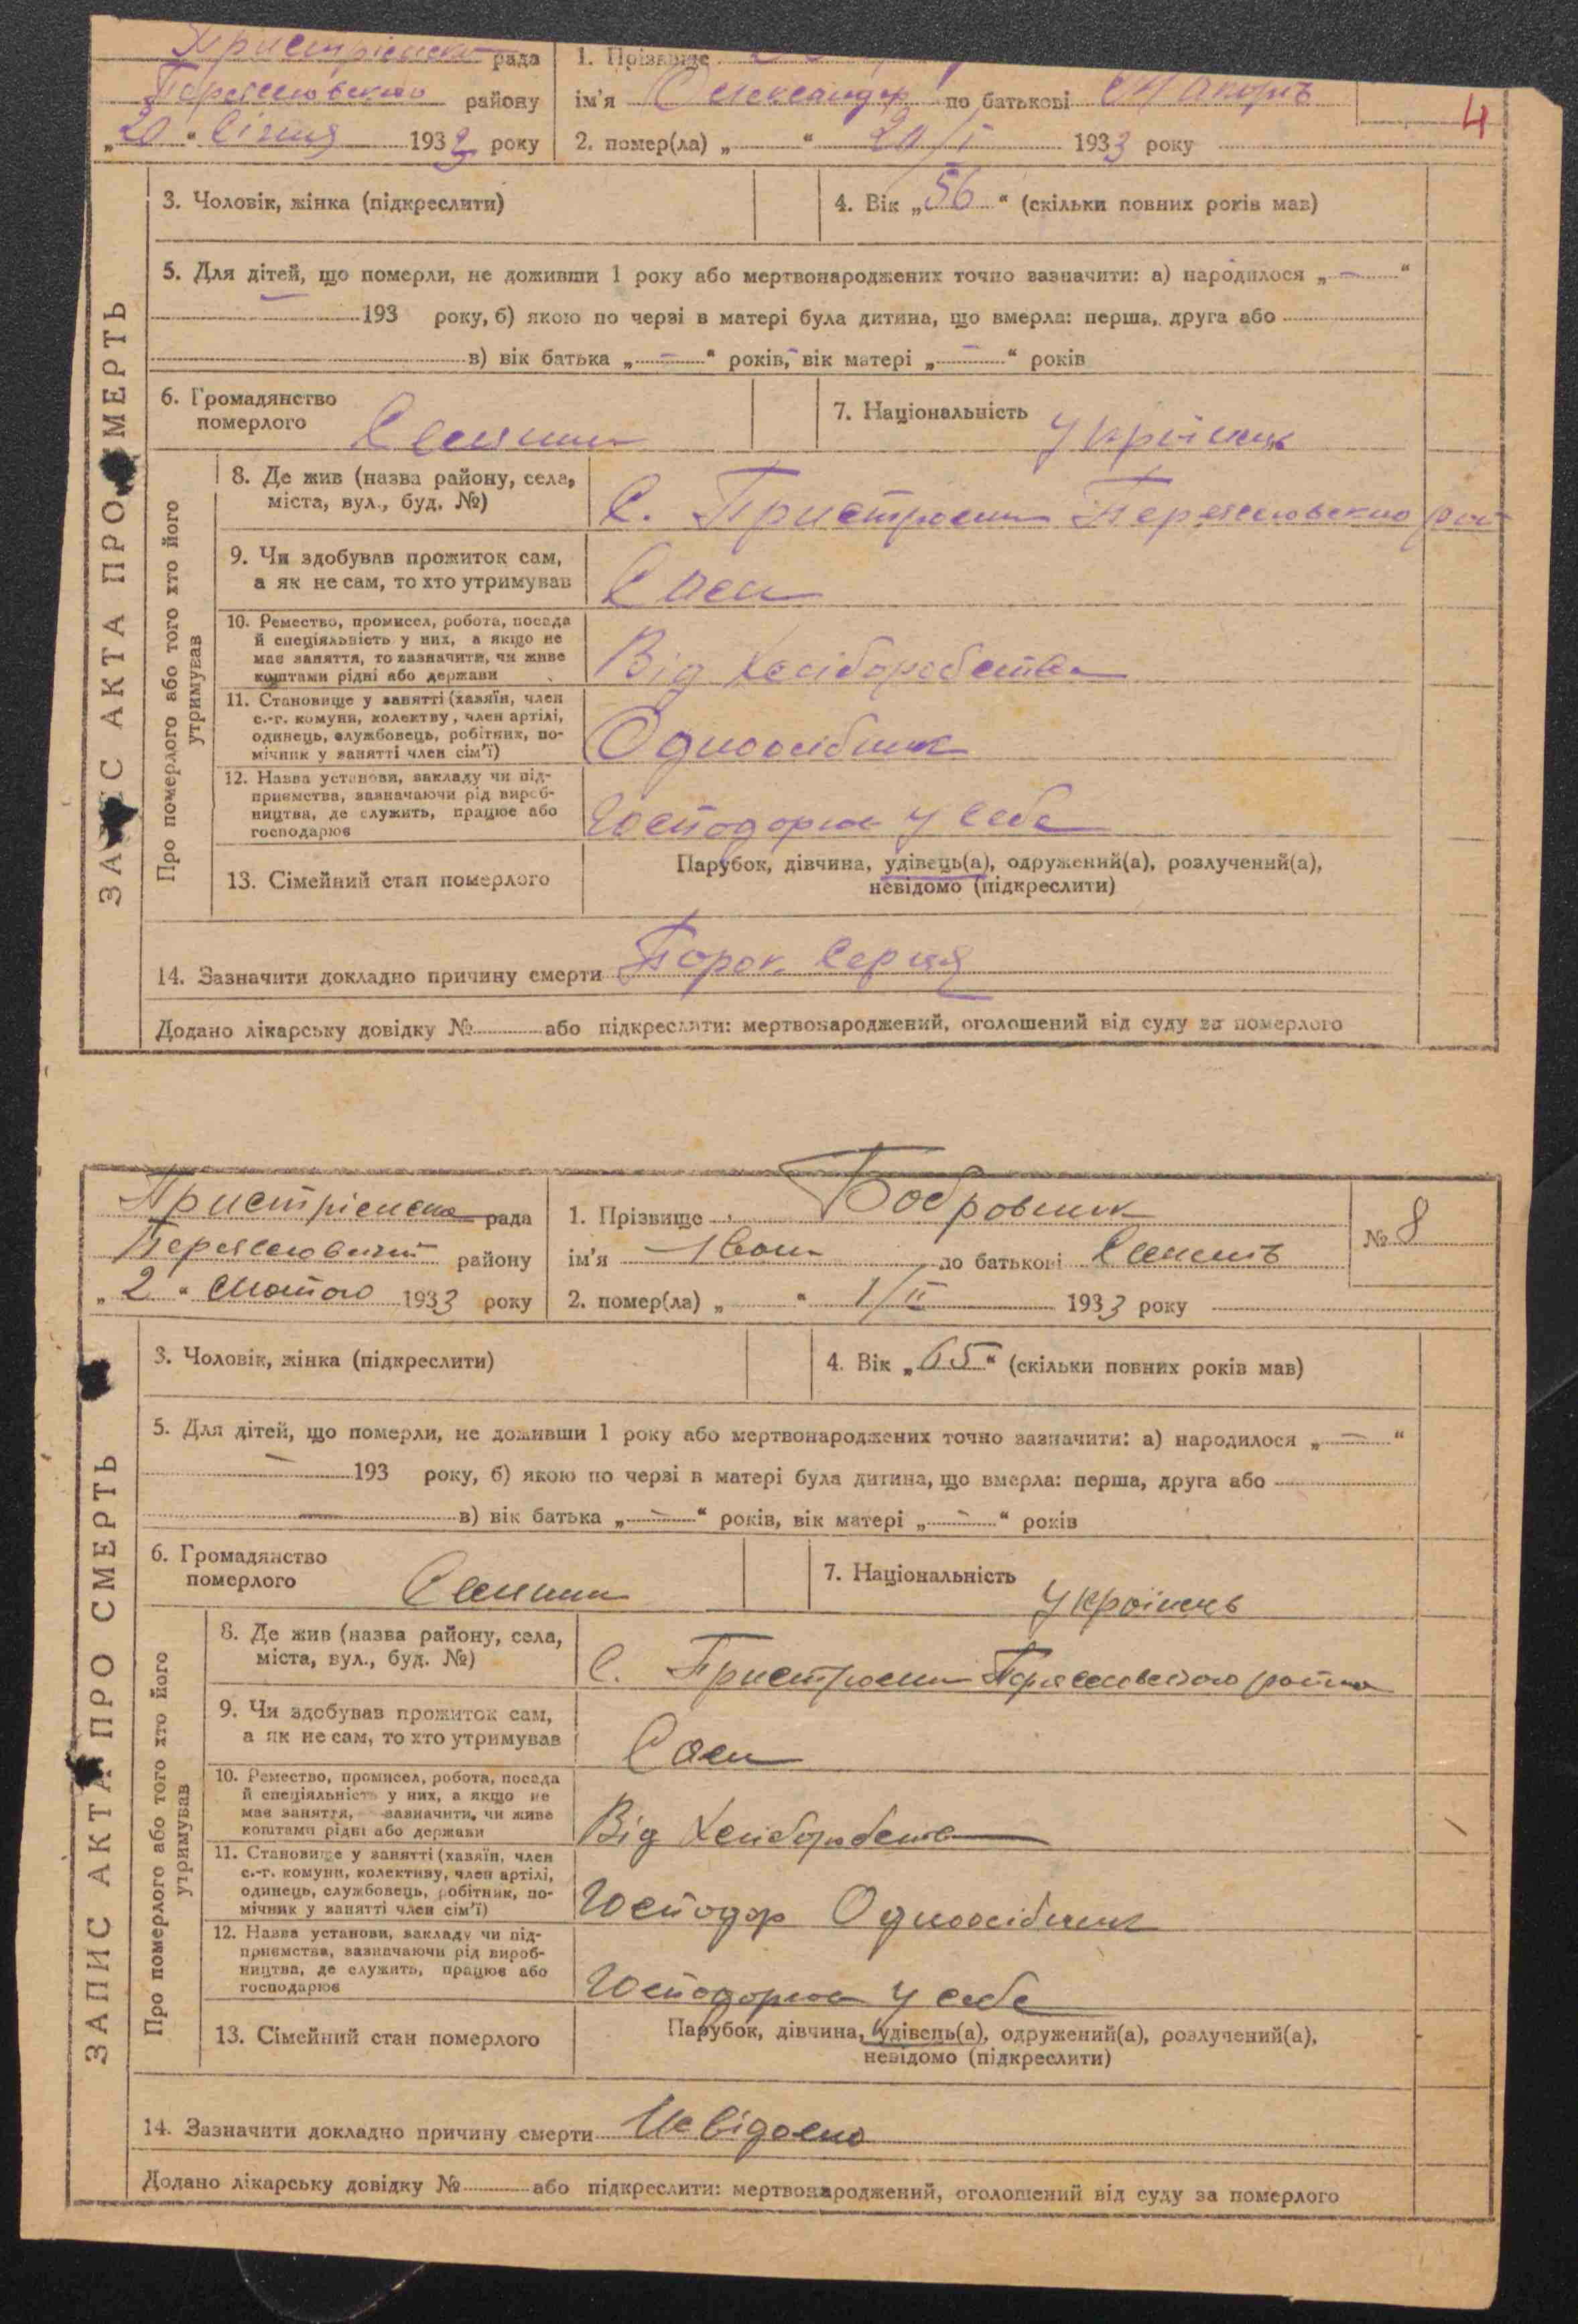 Пристрісмска рада
1. Прізвище
Переяславського району
ім'я Олександр по батькові
4
„20“ Січня 1933 року
2. помер(ла) „ “ 20/I 1933 року
ЗАПИС АКТА ПРО СМЕРТЬ
3. Чоловік, жінка (підкреслити)
4. Вік „56“ (скільки повних років мав)
5. Для дітей, що померли, не доживши 1 року або мертвонароджених точно зазначити: а) народилося „ – “
– 193 року, б) якою по черзі в матері була дитина, що вмерла: перша, друга або
в) вік батька „ – “ років, вік матері „ – “ років
6. Громадянство
померлого
7. Національність Українець
Про померлого або того хто його
утримував
8. Де жив (назва району, села,
міста, вул., буд. №)
С. Пристроми Переяславського рай
9. Чи здобував прожиток сам,
а як не сам, то хто утримував
Сам
10. Ремество, промисел, робота, посада
й спеціяльність у них, а якщо не
має заняття, то зазначити, чи живе
коштами рідні або держави
Від Хліборобства
11. Становище у занятті (хазяїн, член
с.-г. комуни, колектву, член артілі,
одинець, службовець, робітник, по-
мічник у занятті член сім'ї)
Одноосібник
12. Назва установи, закладу чи під-
приємства, зазначаючи рід вироб-
ництва, де служить, працює або
господарює
Господарює у себе
13. Сімейний стан померлого
Парубок, дівчина, удівець(а), одружений(а), розлучений(а),
невідомо (підкреслити)
14. Зазначити докладно причину смерти Порок Серця
Додано лікарську довідку № або підкреслити: мертвонароджений, оголошений від суду за померлого
Пристрісмска рада
1. Прізвище Бобровник
№ 8
району
ім'я Іван по батькові
„2“ Лютого 1933 року
2. помер(ла) „ “ 1/II 1933 року
ЗАПИС АКТА ПРО СМЕРТЬ
3. Чоловік, жінка (підкреслити)
4. Вік „65“ (скільки повних років мав)
5. Для дітей, що померли, не доживши 1 року або мертвонароджених точно зазначити: а) народилося „ – “
– 193 року, б) якою по черзі в матері була дитина, що вмерла: перша, друга або
– в) вік батька „ – “ років, вік матері „ – “ років
6. Громадянство
померлого
7. Національність Українець
Про померлого або того хто його
утримував
8. Де жив (назва району, села,
міста, вул., буд. №)
С. Пристроми Переяславського району
9. Чи здобував прожиток сам,
а як не сам, то хто утримував
Сам
10. Ремество, промисел, робота, посада
й спеціяльність у них, а якщо не
має заняття, зазначити, чи живе
коштами рідні або держави
Від Хліборобства
11. Становище у занятті (хазяїн, член
с.-г. комуни, колективу, член артілі,
одинець, службовець, робітник, по-
мічник у занятті член сім'ї)
Господар Одноосібник
12. Назва установи, закладу чи під-
приємства, зазначаючи рід вироб-
ництва, де служить, працює або
господарює
Господарює у себе
13. Сімейний стан померлого
Парубок, дівчина, удівець(а), одружений(а), розлучений(а),
невідомо (підкреслити)
14. Зазначити докладно причину смерти Невідомо
Додано лікарську довідку № або підкреслити: мертвонароджений, оголошений від суду за померлого